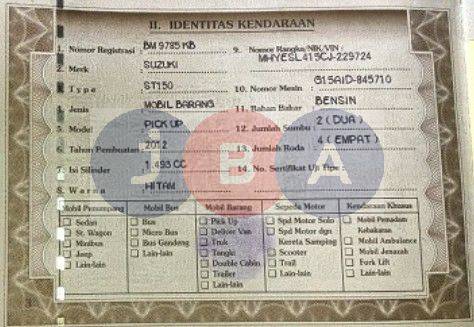 II. IDENTITAS KENDARAAN
1. Nomor Registrasi : BM 9785 KB
2. Merk : SUZUKI
3. Type : ST150
4. Jenis : MOBIL BARANG
5. Model : PICK UP
6. Tahun Pembuatan : 2012
7. Isi Silinder : 1.493 CC
8. Warna : HITAM
9. Nomor Rangka/NIK/VIN :
MHYESL415CJ-229724
10. Nomor Mesin : G15AID-845710
11. Bahan Bakar : BENSIN
12. Jumlah Sumbu : 2 ( DUA )
13. Jumlah Roda : 4 ( EMPAT )
14. No. Sertifikat Uji Tipe :
JBA
Mobil Penumpang
Sedan
St. Wagon
Minibus
Jeep
Lain-lain
Mobil Bus
Bus
Micro Bus
Bus Gandeng
Lain-lain
Mobil Barang
Pick Up
Deliver Van
Truk
Tangki
Double Cabin
Trailer
Lain-lain
Sepeda Motor
Spd Motor Solo
Spd Motor dgn
Kereta Samping
Scooter
Trail
Lain-lain
Kendaraan Khusus
Mobil Pemadam
Kebakaran
Mobil Ambulance
Mobil Jenazah
Fork Lift
Lain-lain